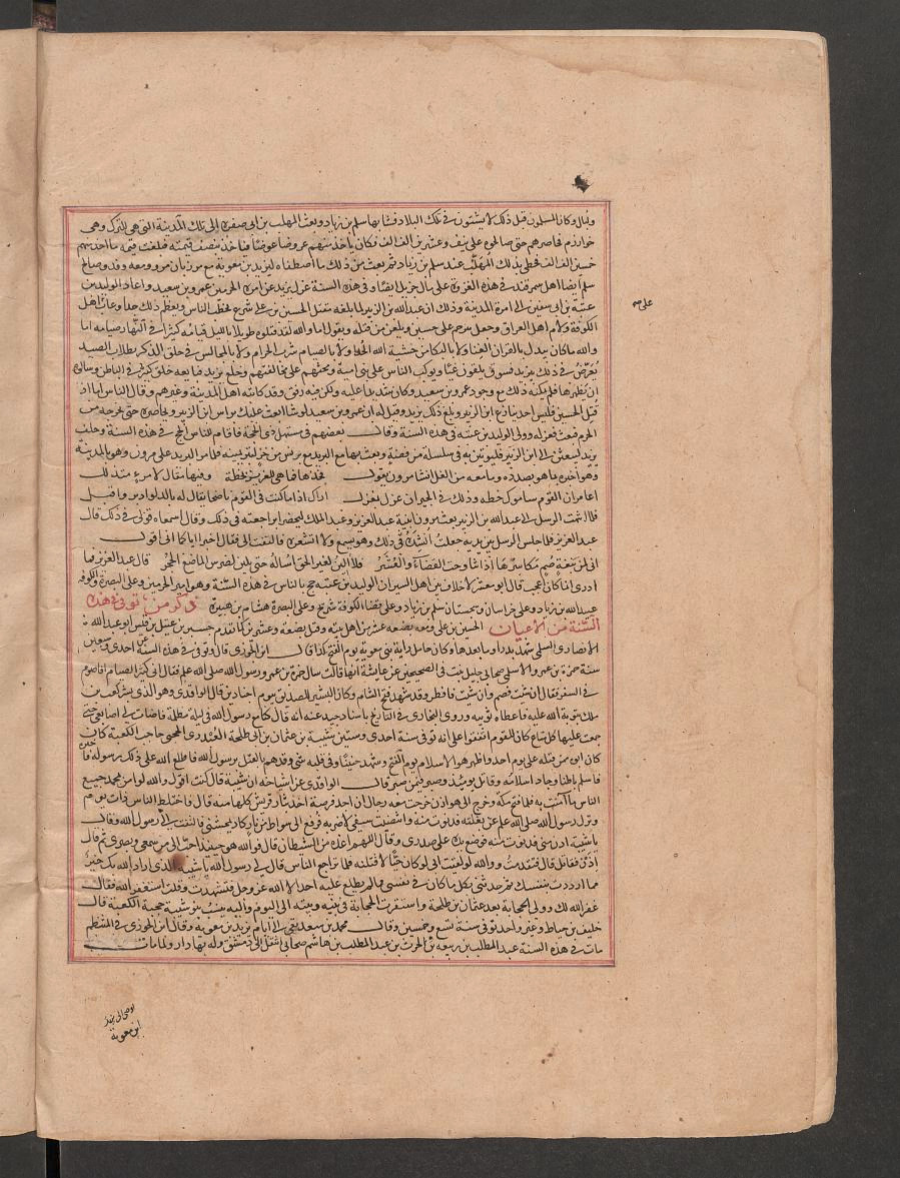 وقال وكان المسلمون قبل ذلك لا يشتون في تلك البلاد فشتا بها سلم بن زياد وبعث المهلب بن ابي صفرة الى تلك المدينة التي هي للترك وهي
خوارزم فحاصرهم حتى صالحوه على نيف وعشرين الف الف فكان ياخذ منهم عروضا عوضا فياخذ بنصف قيمته فبلغت قيمة ما اخذ منهم
خمسين الف الف فحظي بذلك المهلب عند سلم بن زياد ثم بعث من ذلك ما اصطفاه ليزيد بن معوية مع مرزبان مرو ومعه وفد وصالح
سلم ايضا اهل سمرقند في هذه الغزوة على مال جزيل ايضا وفي هذه السنة عزل يزيد عن امرة الحرمين عمرو بن سعيد واعاد الوليد بن
عتبة بن ابي سفين الى امرة المدينة وذلك ان عبد الله بن الزبير لما بلغه مقتل الحسين بن علي شرع يخطب الناس ويعظم ذلك جدا وعاب اهل
الكوفة ولام اهل العراق وجعل يترحم على حسين ويلعن من قتله ويقول اما والله لقد قتلوه طويلا بالليل قيامه كثيرا في النهار صيامه اما
والله ما كان يبدل بالقران الغنا ولا بالبكا من خشية الله الحدا ولا بالصيام شرب الحرام ولا بالمجالس في حلق الذكر بطلاب الصيد
يعرض في ذلك بيزيد فسوف يلقون غيا ويولب الناس على بني امية ويحثهم على مخالفتهم وخلع يزيد فبايعه خلق كثير في الباطن وسالوه
ان يظهرها فلم يمكنه ذلك مع وجود عمرو بن سعيد وكان شديدا عليه ولكن فيه رفق وقد كاتبه اهل المدينة وغيرهم وقال الناس اما اذ
قتل الحسين فليس احد ينازع ابن الزبير وبلغ ذلك يزيد وقيل له ان عمرو بن سعيد لو شا لبعث اليك براس ابن الزبير او يحاصره حتى يخرجه من
الحرم فبعث فعزله وولى الوليد بن عتبة في هذه السنة وقال بعضهم في مستهل ذي الحجة فاقام للناس الحج في هذه السنة وحلف
يزيد ليبعثن الى ابن الزبير فليوتين به في سلسلة من فضة وبعث بها مع البريد مع برنس من خز لتبر يمينه فلما مر البريد على مروان وهو بالمدينة
وهو اخبره بما هو بصدده وما معه من الغل انشا مروان يقول فخذها فما هي للعزيز بخطة وفيها مقال لامرء متذلل
اعامر ان القوم ساموك خطة وذلك في الجيران عزل بمغزل اراك اذا ما كنت في القوم ناصحا يقال له بالدلو ادبر واقبل
فلما انتهت الرسل الى عبد الله بن الزبير بعث مروان ابنيه عبد العزيز وعبد الملك ليحضرا مراجعته في ذلك وقال اسمعاه قولي في ذلك قال
عبد العزيز فلما جلس الرسل بين يديه جعلت انشده في ذلك وهو يسمع ولا اشعره فالتفت الي فقال اخبرا اباكما اني اقول
اني لمن نبعة صم مكاسرها اذا تناوحت القصباء والعشر فلا الين لغير الحق اساله حتى يلين لضرس الماضغ الحجر قال عبد العزيز فما
ادري ايما كان اعجب قال ابو معشر لا خلاف بين اهل السير ان الوليد بن عتبة حج بالناس في هذه السنة وهو امير الحرمين وعلى البصرة والكوفة
عبيد الله بن زياد وعلى خراسان وسجستان سلم بن زياد وعلى قضا الكوفة شريح وعلى البصرة هشام بن هبيرة ذكر من توفي في هذه
السنة من الاعيان الحسين بن علي ومعه بضعة عشر من اهل بيته وقيل بضعة وعشرين كما تقدم جبر بن عتيك بن قيس ابو عبد الله
الانصاري السلمي شهد بدرا وما بعدها وكان حامل راية بني معوية يوم الفتح كذا قال ابن الجوزي قال وتوفي في هذه السنة عن احدى وسبعين
سنة حمزة بن عمرو الاسلمي صحابي جليل ثبت في الصحيحين عن عايشة انها قالت سال حمزة بن عمرو رسول الله صلى الله عليه فقال اني كثير الصيام افاصوم
في السفر فقال ان شئت فصم وان شئت فافطر وقد شهد فتح الشام وكان البشير للصديق بيوم اجنادين قال الواقدي وهو الذي بشر كعب بن
ملك بتوبة الله عليه فاعطاه ثوبيه وروى البخاري في التاريخ باسناد جيد عنه انه قال كنا مع رسول الله في ليلة مظلمة فاضات لي اصابعي حتى
جمعت عليها كل متاع كان للقوم اتفقوا على انه توفي سنة احدى وستين شيبة بن عثمان بن ابي طلحة العبدري الحجبي حاجب الكعبة كان
كان ابوه ممن قتله علي يوم احد واظهر هو الاسلام يوم الفتح وشهد حنينا وفي قلبه شي وقد هم بالفتك برسول الله فاطلع الله على ذلك رسوله فاخبره
فاسلم باطنا وجاد اسلامه وقاتل يومئذ وصبر فيمن صبر قال الواقدي عن اشياخه ان شيبة قال كنت اقول والله لو امن بمحمد جميع
الناس ما آمنت به فلما فتح مكة وخرج الى هوازن خرجت معه رجا ان اجد فرصة اخذ ثار قريش كلها منه قال فاختلط الناس ذات يوم
ونزل رسول الله صلى الله عليه عن بغلته فدنوت منه وانتضيت سيفي لاضربه فرفع لي شواظ من نار كاد يمحشني فالتفت الي رسول الله وقال
يا شيبة ادن مني فدنوت منه فوضع يده على صدري وقال اللهم اعذه من الشيطان قال فوالله هو حينئذ احب الي من سمعي وبصري ثم قال
اذهب فقاتل قال فتقدمت ووالله لو لقيت ابي لو كان حيا لاقتلنه فلما تراجع الناس قال لي رسول الله يا شيبة الذي اراد الله بك خير
مما اردت بنفسك ثم حدثني بكل ما كان في نفسي مما لم يطلع عليه احد الا الله عز وجل فتشهدت وقلت استغفر الله فقال
غفر الله لك وولي الحجابة بعد عثمان بن طلحة واستقرت الحجابة في بنيه وبيته الى اليوم واليه ينسب بنو شيبة حجبة الكعبة قال
خليفة بن خياط وغير واحد توفي سنة تسع وخمسين وقال محمد بن سعد بقي الى ايام يزيد بن معوية وقال ابن الجوزي في المنتظم
مات في هذه السنة عبد المطلب بن ربيعة بن الحرث بن عبد المطلب بن هاشم صحابي انتقل الى دمشق وله بها دار ولما مات
اوصى الى يزيد
ابن معوية